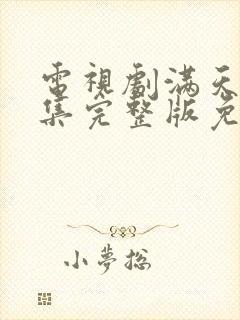 電視劇滿天
集完整版免
小夢總